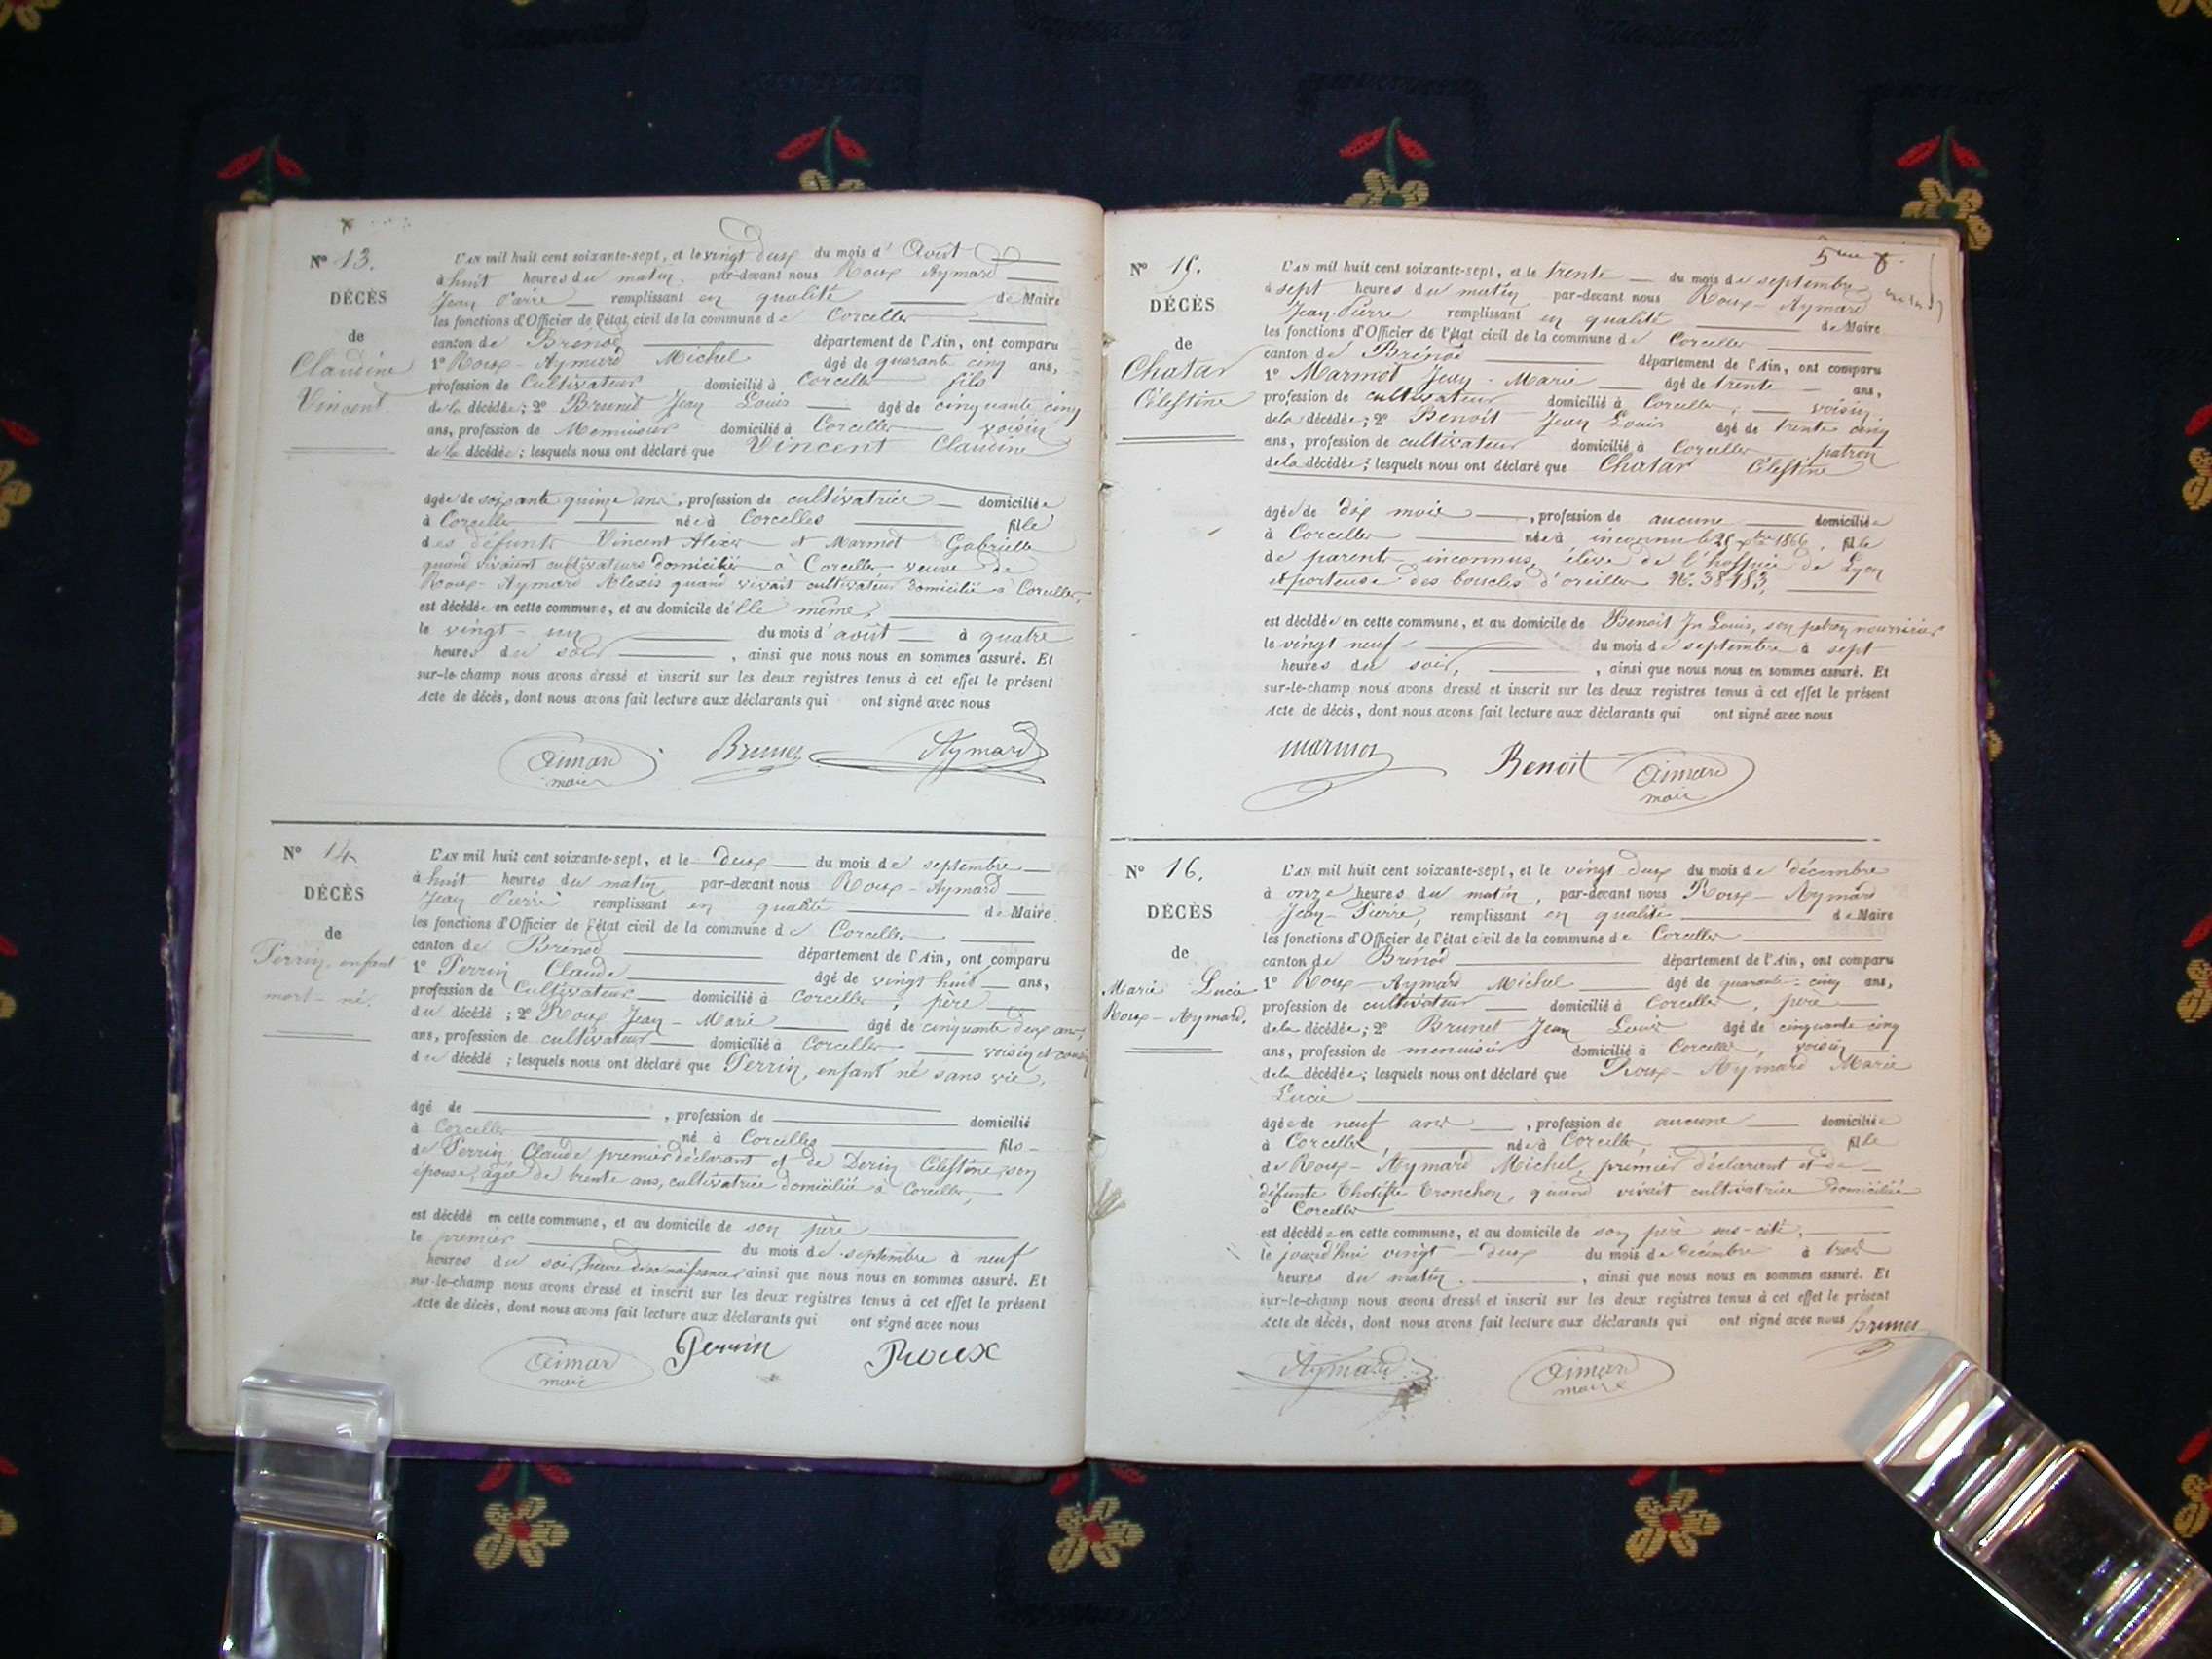 N° 13.
DÉCÈS
de
Claudine
Vincent
L'AN mil huit cent soixante-sept, et le vingt deux du mois d' Août
à huit heures du matin, par-devant nous Roux Aymard
Jean Pierre remplissant en qualité de Maire
les fonctions d'Officier de l'état civil de la commune de Corcelles
canton de Brénod département de l'Ain, ont comparu
1° Roux-Aymard Michel âgé de quarante cinq ans,
profession de Cultivateur domicilié à Corcelles fils
de la décédée ; 2° Brunet Jean Louis âgé de cinquante cinq
ans, profession de Menuisier domicilié à Corcelles voisin
de la décédée ; lesquels nous ont déclaré que Vincent Claudine
âgée de soixante quinze ans, profession de cultivatrice domiciliée
à Corcelles née à Corcelles fille
des défunts Vincent Alexis et Marmot Gabrielle
quand vivaient cultivateurs domiciliés à Corcelles veuve de
Roux-Aymard Alexis quand vivait cultivateur domicilié à Corcelles,
est décédée en cette commune, et au domicile de elle même,
le vingt-un du mois d'août à quatre
heures du soir , ainsi que nous nous en sommes assuré. Et
sur-le-champ nous avons dressé et inscrit sur les deux registres tenus à cet effet le présent
Acte de décès, dont nous avons fait lecture aux déclarants qui ont signé avec nous
Aimard Brunet Aymard
maire
N° 14
DÉCÈS
de
Perrin, enfant
mort-né.
L'AN mil huit cent soixante-sept, et le deux du mois de septembre
à huit heures du matin par-devant nous Roux-Aymard
Jean Pierre remplissant en qualité de Maire
les fonctions d'Officier de l'état civil de la commune de Corcelles
canton de Brénod département de l'Ain, ont comparu
1° Perrin Claude âgé de vingt huit ans,
profession de Cultivateur domicilié à Corcelles, père
du décédé ; 2° Roux Jean-Marie âgé de cinquante deux ans,
ans, profession de cultivateur domicilié à Corcelles voisin et cousin
du décédé ; lesquels nous ont déclaré que Perrin, enfant né sans vie,
âgé de , profession de domicilié
à Corcelles né à Corcelles fils
de Perrin Claude premier déclarant et de Célestine, son
épouse, âgée de trente ans, cultivatrice domiciliée à Corcelles,
est décédé en cette commune, et au domicile de son père
le premier du mois de septembre à neuf
heures du soir, heure de sa naissance, ainsi que nous nous en sommes assuré. Et
sur-le-champ nous avons dressé et inscrit sur les deux registres tenus à cet effet le présent
Acte de décès, dont nous avons fait lecture aux déclarants qui ont signé avec nous
Aimard Perrin Roux
maire
5me
N° 15.
DÉCÈS
de
Chatar
Célestine
L'AN mil huit cent soixante-sept, et le trente du mois de septembre
à sept heures du matin par-devant nous Roux-Aymard
Jean-Pierre remplissant en qualité de Maire
les fonctions d'Officier de l'état civil de la commune de Corcelles
canton de Brénod département de l'Ain, ont comparu
1° Marmot Jean-Marie âgé de trente ans,
profession de cultivateur domicilié à Corcelles, voisin
de la décédée ; 2° Benoit Jean Louis âgé de trente cinq
ans, profession de cultivateur domicilié à Corcelles patron
de la décédée ; lesquels nous ont déclaré que Chatar Célestine
âgée de dix mois , profession de aucune domiciliée
à Corcelles née à inconnu 1866, fille
de parents inconnus, élève de l'hospice de Lyon
et porteuse des boucles d'oreilles N°. 38183,
est décédée en cette commune, et au domicile de Benoit Jn Louis, son patron nourricier
le vingt neuf du mois de septembre à sept
heures du soir, , ainsi que nous nous en sommes assuré. Et
sur-le-champ nous avons dressé et inscrit sur les deux registres tenus à cet effet le présent
Acte de décès, dont nous avons fait lecture aux déclarants qui ont signé avec nous
marmot Benoit Aimard
maire
N° 16.
DÉCÈS
de
Marie Lucie
Roux-Aymard.
L'AN mil huit cent soixante-sept, et le vingt deux du mois de décembre
à onze heures du matin, par-devant nous Roux-Aymard
Jean-Pierre, remplissant en qualité de Maire
les fonctions d'Officier de l'état civil de la commune de Corcelles
canton de Brénod département de l'Ain, ont comparu
1° Roux-Aymard Michel âgé de quarante-cinq ans,
profession de cultivateur domicilié à Corcelles, père
de la décédée ; 2° Brunet Jean Louis âgé de cinquante cinq
ans, profession de menuisier domicilié à Corcelles, voisin
de la décédée ; lesquels nous ont déclaré que Roux-Aymard Marie
Lucie
âgée de neuf ans , profession de aucune domiciliée
à Corcelles, née à Corcelles fille
de Roux-Aymard Michel, premier déclarant et de
défunte Tronchon, quand vivait cultivatrice domiciliée
à Corcelles
est décédée en cette commune, et au domicile de son père sus-cité,
le jourd'hui vingt-deux du mois de décembre à trois
heures du matin. , ainsi que nous nous en sommes assuré. Et
sur-le-champ nous avons dressé et inscrit sur les deux registres tenus à cet effet le présent
Acte de décès, dont nous avons fait lecture aux déclarants qui ont signé avec nous brunet
Aymard Aimard
maire